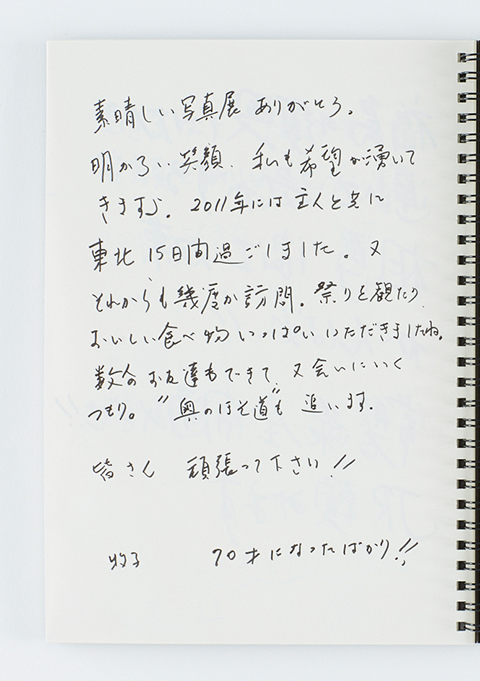 素晴しい写真展 ありがとう。
明かるい笑顔、私も希望が湧いて
きますよ。2011年には主人と共に
東北15日間過ごしました。又
それからも幾度か訪問。祭りを観たり
おいしい食べ物いっぱいいただきましたね。
数人のお友達もできて、又会いにいく
つもり。"奥のほそ道"も 追います。
皆さん 頑張って下さい!!
70才になったばかり!!